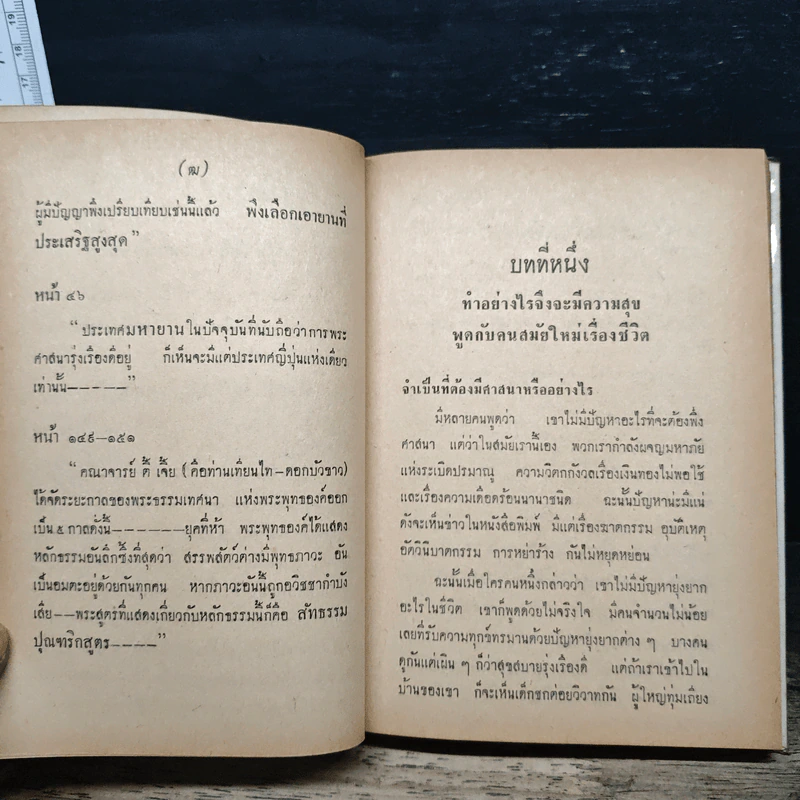 (ฒ)
ผู้มีปัญญาพึงเปรียบเทียบเช่นนี้แล้ว พึงเลือกเอายานที่
ประเสริฐสูงสุด"
หน้า ๔๖
"ประเทศมหายานในปัจจุบันที่นับถือว่าการพระ
ศาสนารุ่งเรืองดีอยู่ ก็เห็นจะมีแต่ประเทศญี่ปุ่นแห่งเดียว
เท่านั้น-----"
หน้า ๑๔๙-๑๕๑
"คณาจารย์ ตี๋ เจี้ย (คือท่านเทียนไท-ดอกบัวขาว)
ได้จัดระยะกาลของพระธรรมเทศนา แห่งพระพุทธองค์ออก
เป็น ๕ กาลดั่งนี้-------ยุคที่ห้า พระพุทธองค์ได้แสดง
หลักธรรมอันลึกซึ้งที่สุดว่า สรรพสัตว์ต่างมีพุทธภาวะ อัน
เป็นอมตะอยู่ด้วยกันทุกคน หากภาวะอันนี้ถูกอวิชชากำบัง
เสีย--พระสูตรที่แสดงเกี่ยวกับหลักธรรมนี้ก็คือ สัทธรรม
ปุณฑริกสูตร-----"
บทที่หนึ่ง
ทำอย่างไรจึงจะมีความสุข
พูดกับคนสมัยใหม่เรื่องชีวิต
จำเป็นที่ต้องมีศาสนาหรืออย่างไร
มีหลายคนพูดว่า เขาไม่มีปัญหาอะไรที่จะต้องพึ่ง
ศาสนา แต่ว่าในสมัยเรานี้เอง พวกเรากำลังผจญมหาภัย
แห่งระเบิดปรมาณู ความวิตกกังวลเรื่องเงินทองไม่พอใช้
และเรื่องความเดือดร้อนนานาชนิด ฉะนั้นปัญหาน่ะมีแน่
ดังจะเห็นข่าวในหนังสือพิมพ์ มีแต่เรื่องฆาตกรรม อุบัติเหตุ
อัตวินิบาตกรรม การหย่าร้าง กันไม่หยุดหย่อน
ฉะนั้นเมื่อใครคนหนึ่งกล่าวว่า เขาไม่มีปัญหายุ่งยาก
อะไรในชีวิต เขาก็พูดด้วยไม่จริงใจ มีคนจำนวนไม่น้อย
เลยที่รับความทุกข์ทรมานด้วยปัญหายุ่งยากต่าง ๆ บางคน
ดูกันแต่เผิน ๆ ก็ว่าสุขสบายรุ่งเรืองดี แต่ถ้าเราเข้าไปใน
บ้านของเขา ก็จะเห็นเด็กชกต่อยวิวาทกัน ผู้ใหญ่ทุ่มเถียง
17
18
19